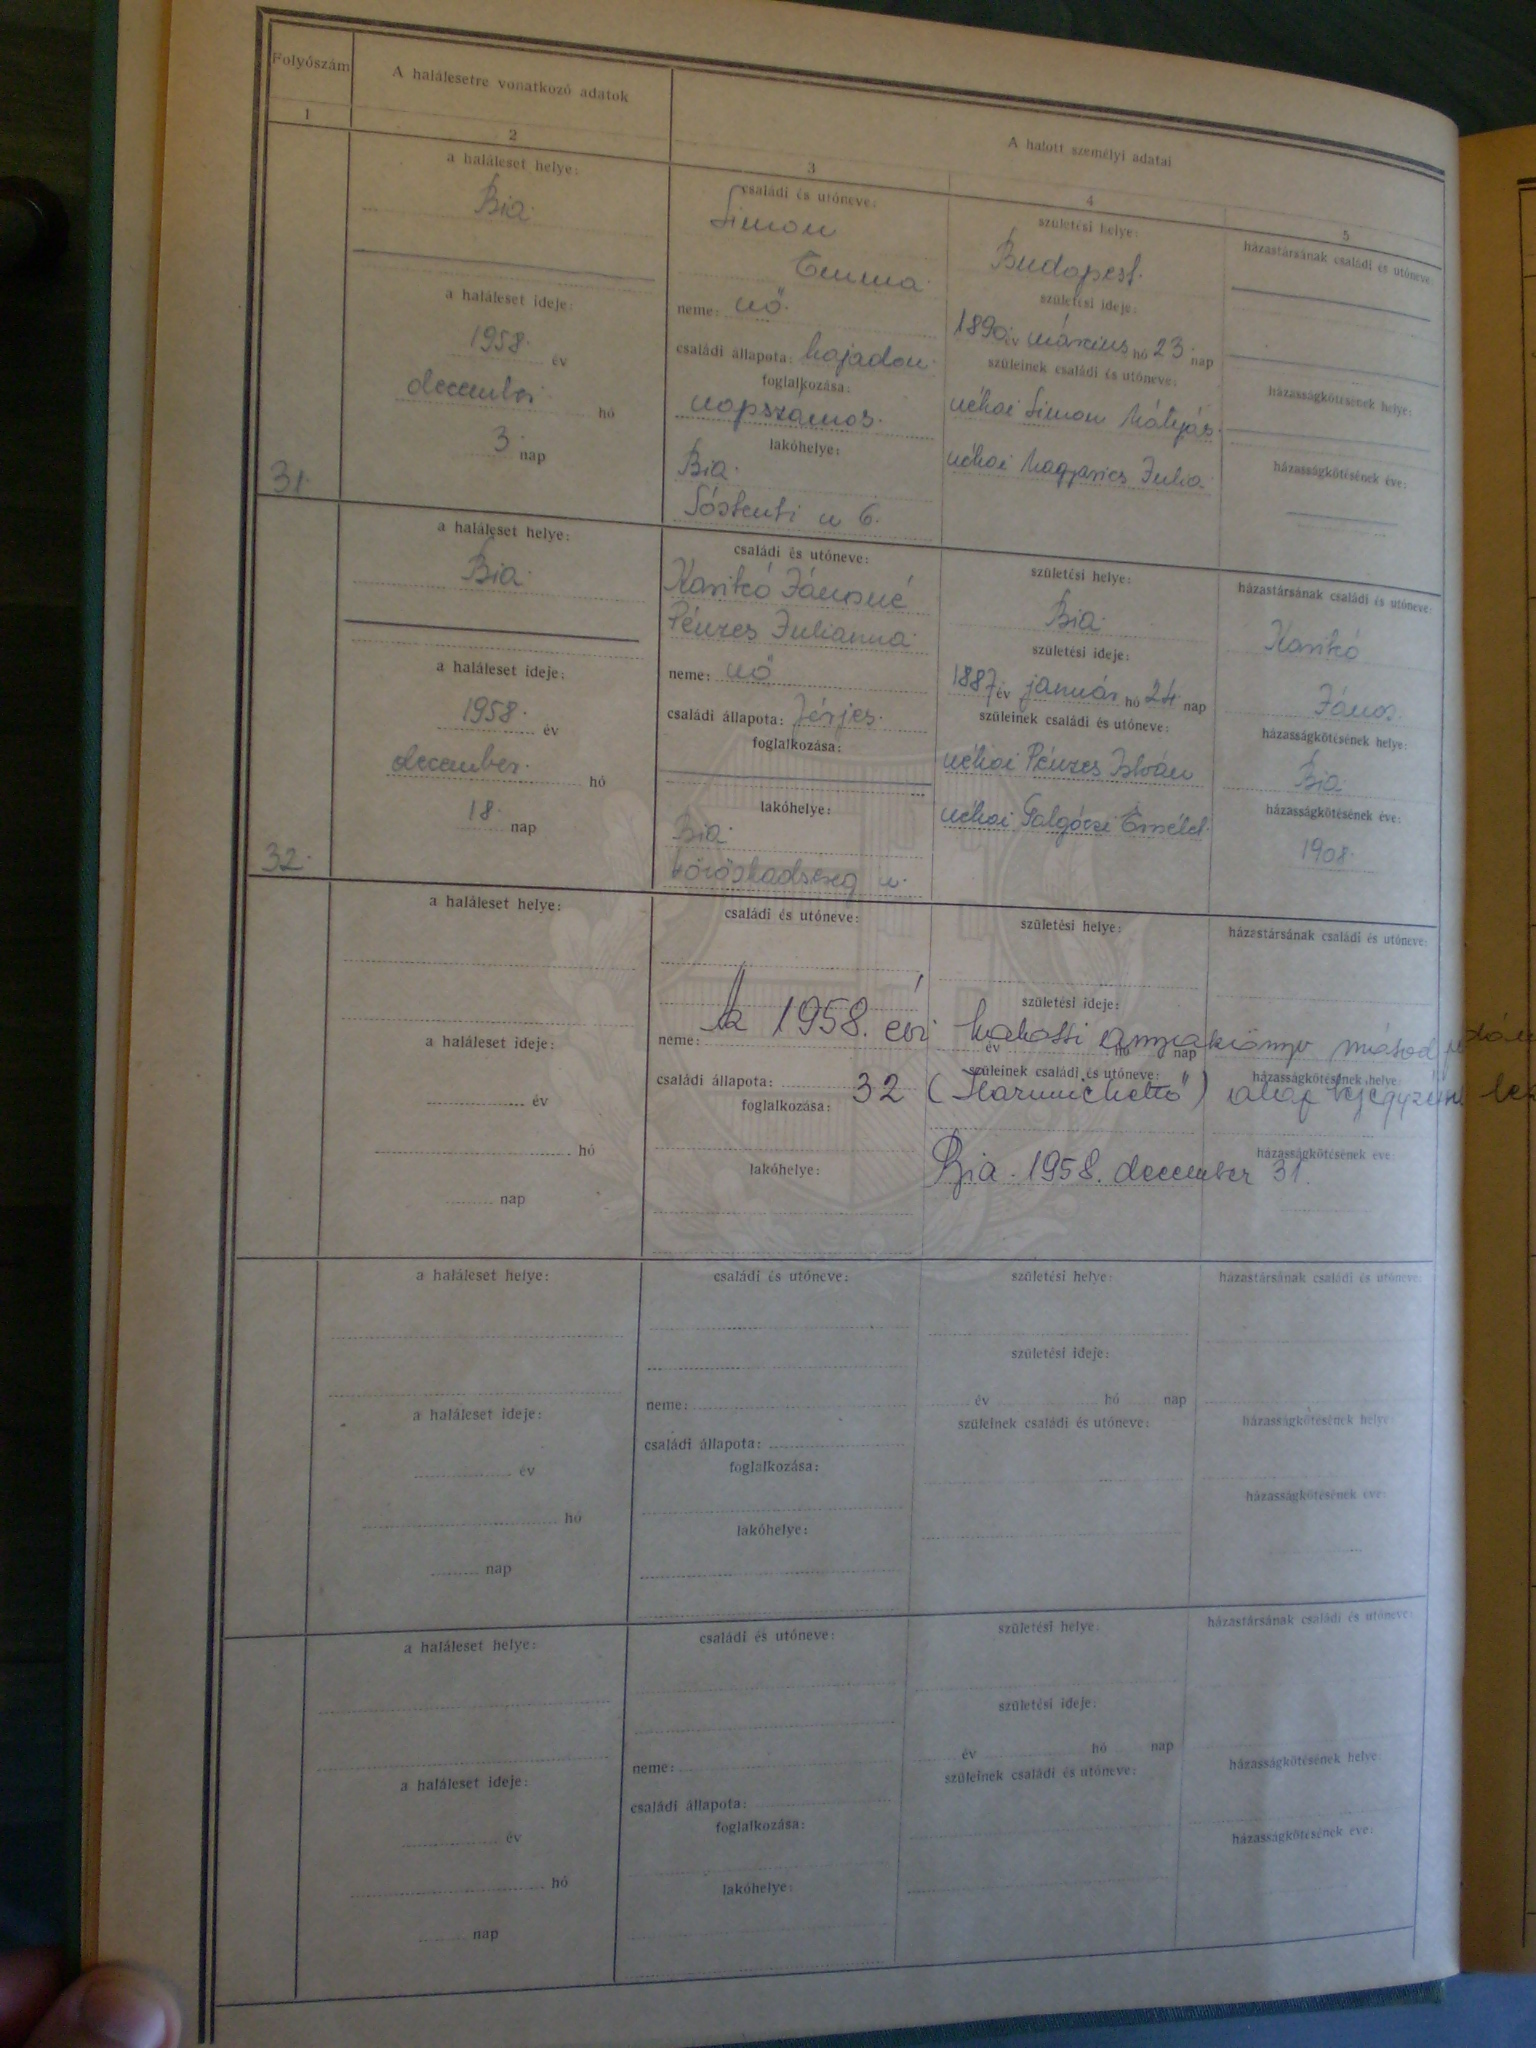 Folyószám
A halálesetre vonatkozó adatok
A halott személyi adatai
1
2
3
4
5
a haláleset helye:
Bia.
a haláleset ideje:
1958. év
december hó
3. nap
31.
családi és utóneve:
Simon
Emma
neme: nő.
családi állapota: hajadon.
foglalkozása:
napszámos.
lakóhelye:
Bia.
u 6.
születési helye:
Budapest.
születési ideje:
1890 év március hó 23. nap
szüleinek családi és utóneve:
néhai Simon Mátyás.
néhai Julia
házastársának családi és utóneve:
házasságkötésének helye:
házasságkötésének éve:
a haláleset helye:
Bia.
a haláleset ideje:
1958. év
december. hó
18. nap
32.
családi és utóneve:
Karikó Jánosné
Pénzes Julianna.
neme: nő
családi állapota: férjes.
foglalkozása:
lakóhelye:
Bia.
u.
születési helye:
Bia.
születési ideje:
1887 év január hó 24. nap
szüleinek családi és utóneve:
néhai Pénzes István
néhai Galgóczi Erzsébet.
házastársának családi és utóneve:
Karikó
János.
házasságkötésének helye:
Bia.
házasságkötésének éve:
1908.
a haláleset helye:
a haláleset ideje:
év
hó
nap
családi és utóneve:
neme:
családi állapota:
foglalkozása:
lakóhelye:
születési helye:
születési ideje:
év hó nap
szüleinek családi és utóneve:
házastársának családi és utóneve:
házasságkötésének helye:
házasságkötésének éve:
Az 1958. évi halotti anyakönyv
32 (Harminchettő) alap
Bia. 1958. december 31.
a haláleset helye:
a haláleset ideje:
év
hó
nap
családi és utóneve:
neme:
családi állapota:
foglalkozása:
lakóhelye:
születési helye:
születési ideje:
év hó nap
szüleinek családi és utóneve:
házastársának családi és utóneve:
házasságkötésének helye:
házasságkötésének éve:
a haláleset helye:
a haláleset ideje:
év
hó
nap
családi és utóneve:
neme:
családi állapota:
foglalkozása:
lakóhelye:
születési helye:
születési ideje:
év hó nap
szüleinek családi és utóneve:
házastársának családi és utóneve:
házasságkötésének helye:
házasságkötésének éve: